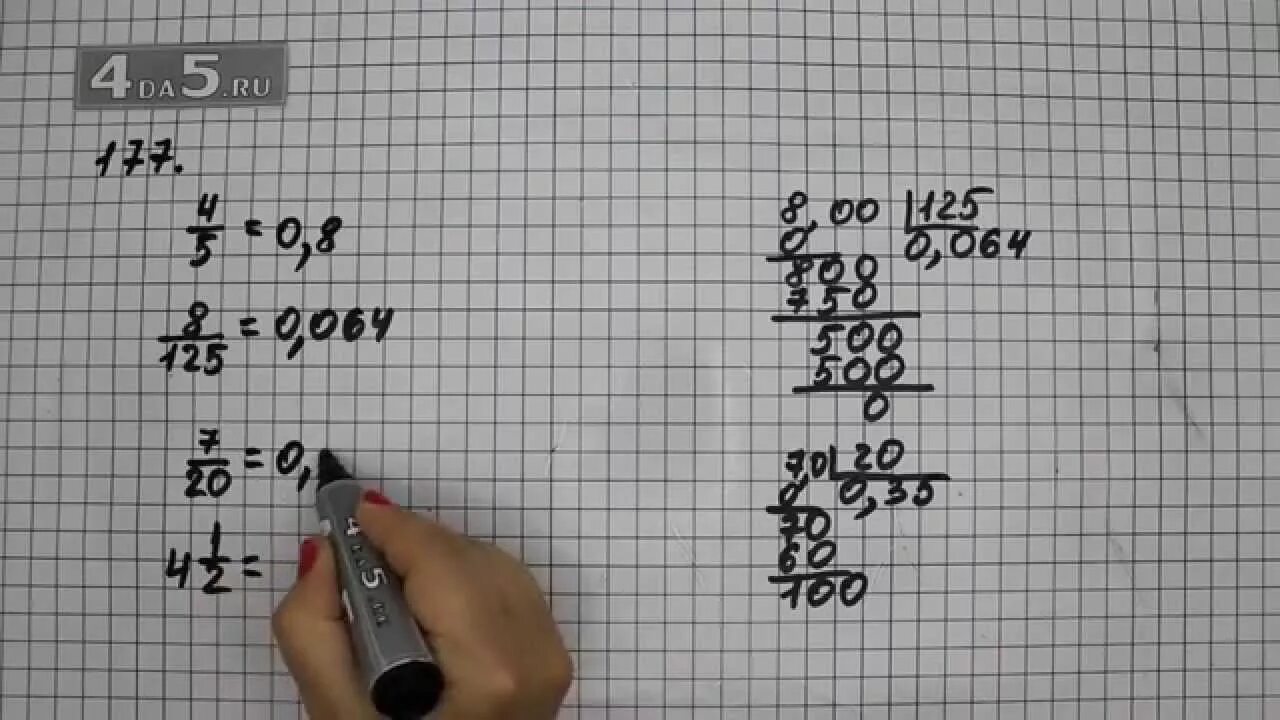 4DA5.RU
177.
4/5 = 0,8
8/125 = 0,064
7/20 = 0,
4 1/2 =
8,00 | 125
0 0,064
800
750
500
500
0
7,0 | 20
0 0,35
70
60
100
4DA5.RU